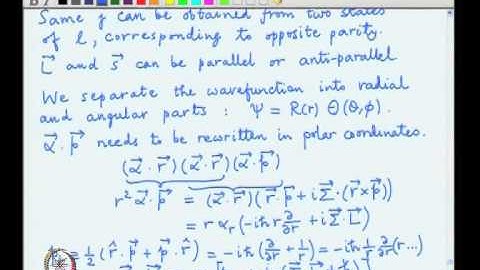 Same j can be obtained from two states
of l, corresponding to opposite parity.
L⃗ and s⃗ can be parallel or anti-parallel
We separate the wavefunction into radial
and angular parts : Ψ = R(r) Θ(θ,φ).
α⃗·p⃗ needs to be rewritten in polar coordinates.
(α⃗·r⃗)(α⃗·r⃗)(α⃗·p⃗)
r² α⃗·p⃗ = (α⃗·r⃗)(r⃗·p⃗ + iΣ⃗·(r⃗×p⃗))
= r αᵣ(-iħr ∂/∂r + iΣ⃗·L⃗)
= ½(r̂·p⃗ + p⃗·r̂) = -iħ(∂/∂r + 1/r) = -iħ 1/r ∂/∂r(r...)